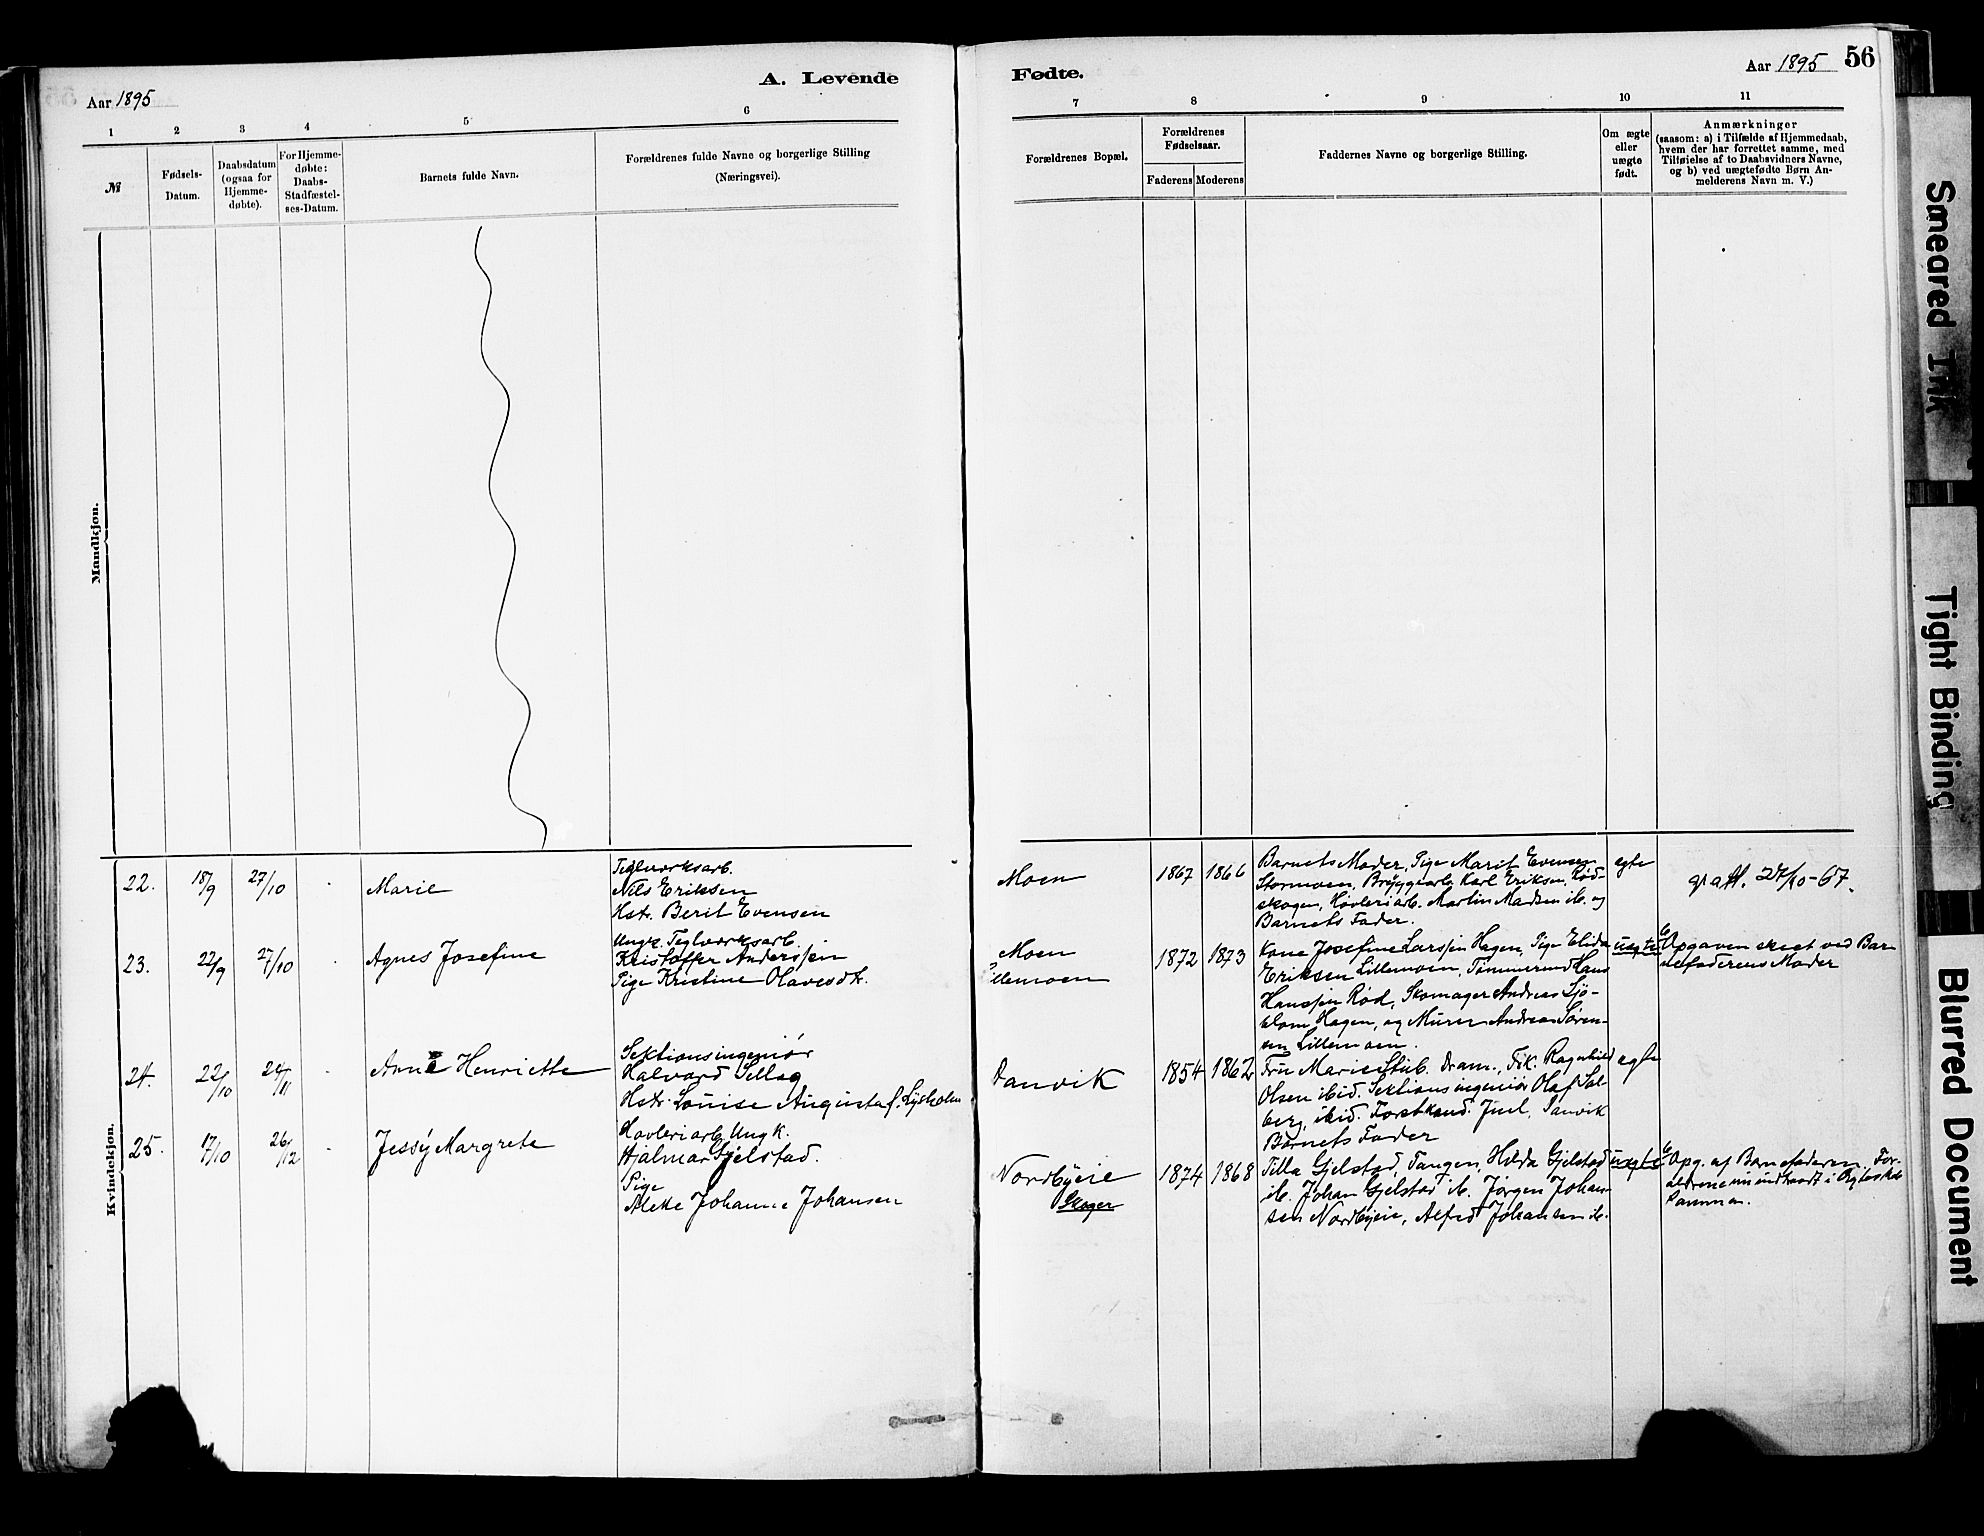 Aar 1895
A. Levende
Fødte.
Aar 1895
56
1
2
3
4
5
6
7
8
9
10
11
№
Fødsels-
Datum.
Daabsdatum
(ogsaa for
Hjemme-
døbte).
For Hjemme-
døbte:
Daabs-
Stadfæstel-
ses-Datum.
Barnets fulde Navn.
Forældrenes fulde Navne og borgerlige Stilling
(Næringsvei).
Forældrenes Bopæl.
Forældrenes
Fødselsaar.
Faderens
Moderens
Faddernes Navne og borgerlige Stilling.
Om ægte
eller
uægte
født.
Anmærkninger
(saasom: a) i Tilfælde af Hjemmedaab,
hvem der har forrettet samme, med
Tilføielse af to Daabsvidners Navne,
og b) ved uægtefødte Børn An-
melderens Navn m. V.)
Mandkjøn.
Kvindekjøn.
22.
18/9
27/10
Marie
Teglværksarb.
Nils Eriksen
Hstr. Berit Evensen
Moen
1867
1866
Barnets Moder, Pige Marit Evensen
Stormoen, Bryggearb. Karl Eriksen, Rød-
skogen, Høvleriarb. Martin Madsen ib. og
Barnets Fader.
egte
att. 27/10-67.
23.
22/9
27/10
Agnes Josefine
Ungk. Teglværksarb.
Kristoffer Anderssen
Pige Kristine Olavesdt.
Moen
Lillemoen
1872
1873
Kone Josefine Larssen Hagen, Pige Elida
Eriksen Lillemoen, Tømmermd Hans
Hanssen Rød, Skomager Andreas Sjö-
blom Hagen, og Murer Andreas Søren-
sen Lillemoen.
uegte
Opgaven skeet ved Bar
nefaderens Moder
24.
22/10
24/11
Anna Henriette
Sektionsingeniør
Halvard Selleg
Hstr. Louise Augusta f. Lysholm
Danvik
1854
1862
Fru Marie Stub. Dram., Frk. Ragnhild
Olsen ibid. Sektionsingeniør Olaf Sol-
berg, ibid. Forstkand. Juel, Danvik
Barnets Fader
egte
25.
17/10
26/12
Jessy Margrete
Høvleriarb. Ungk.
Hjalmar Gjelstad.
Pige
Aleke Johanne Johansen
Nordbyeie
Skoger
1874
1868
Tilla Gjelstad, Tangen, Hilda Gjelstad
ib. Johan Gjelstad ib. Jørgen Johan-
sen Nordbyeie, Alfred Johansen ib.
uegte
Opg. af Barnefaderen. For-
ældrene nu indtraadt i Ægteskab
sammen.
Smeared Ink
Tight Binding
Blurred Document